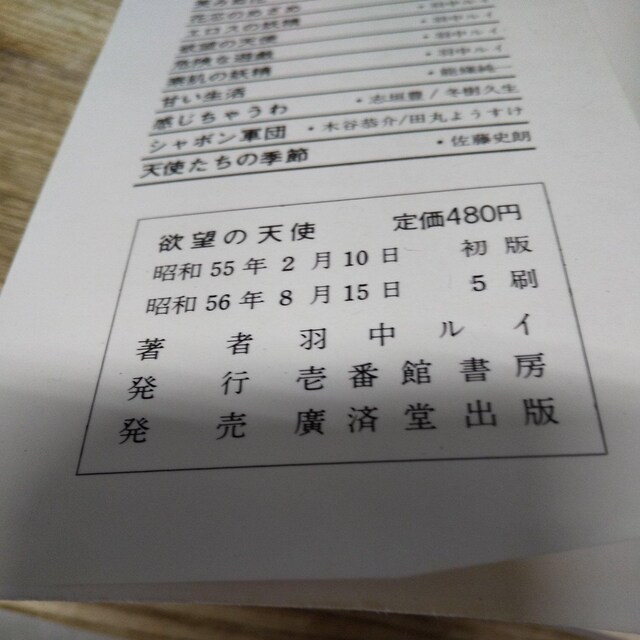 エロスの妖精 ・羽中ルイ
欲望の天使 ・羽中ルイ
危険な遊戯 ・羽中ルイ
素肌の妖精
甘い生活 ・志垣豊/冬樹久生
感じちゃうわ
シャボン軍団 ・木谷恭介/田丸ようすけ
天使たちの季節 ・佐藤史朗
欲望の天使 定価480円
昭和55年2月10日 初版
昭和56年8月15日 5刷
著者 羽中ルイ
発行 壱番館書房
発売 廣済堂出版